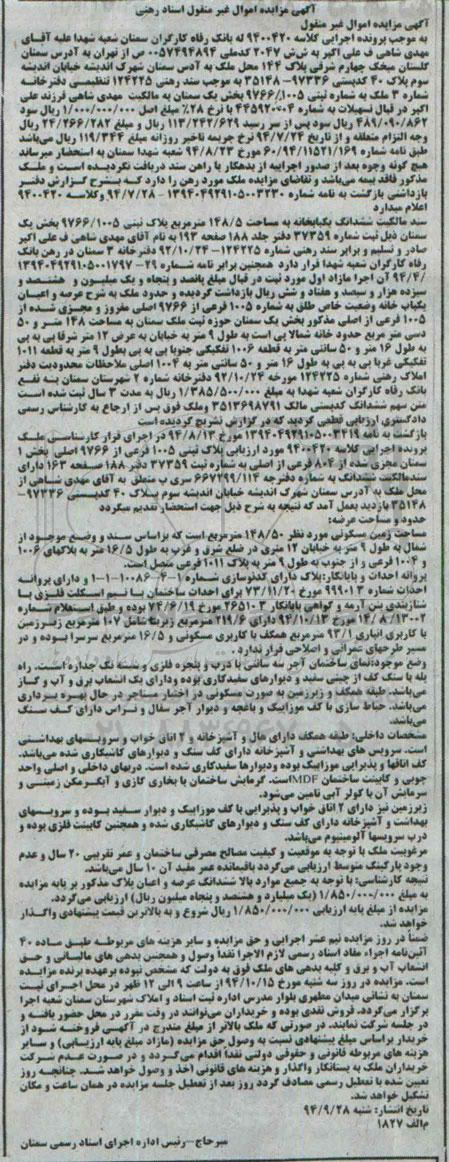 آگهی مزایده اموال غیر منقول اسناد رهنی
آگهی مزایده اموال غیر منقول
به موجب پرونده اجرایی کلاسه ۹۴۰۰۴۲۰ له بانک رفاه کارگران سمنان شعبه شهدا علیه آقای
مهدی شاهی ف علی اکبر به ش‌ش ۲۰۴۷ کدملی ۰۰۵۷۴۹۴۸۹۴ ص از تهران به آدرس سمنان
گلستان میخک چهارم شرقی پلاک ۱۴۴ محل ملک به آدس سمنان شهرک اندیشه خیابان اندیشه
سوم پلاک ۴۰ کدپستی ۹۷۳۳۶-۳۵۱۴۸ به موجب سند رهنی ۱۲۴۲۲۵ تنظیمی دفترخانه
شماره ۳ ملک به شماره ثبتی ۹۷۶۶/۱۰۰۵ بخش یک سمنان به مالکیت مهدی شاهی فرزند علی
اکبر در قبال تسهیلات به شماره ۴۴۵۹۲۰۰۴ با نرخ ۲۸٪ مبلغ اصل ۱/۰۰۰/۰۰۰/۰۰۰ ریال سود
۴۸۹/۰۹۰/۸۶۲ ریال سود پس از سر رسید ۱۱۳/۲۴۲/۶۲۹ ریال و مبلغ ۲۴/۲۶۶/۲۸۲ ریال
وجه التزام متعلقه و از تاریخ ۹۴/۷/۲۴ نرخ جریمه تاخیر روزانه مبلغ ۱۱۹/۳۴۴ ریال می‌باشد
طبق نامه شماره ۶۰/۹۴/۱۱۵۲۱/۱۶۹ مورخ ۹۴/۸/۲۳ شعبه شهدا سمنان به استحضار میرساند
هیچ گونه وجوه بعد از صدور اجراییه از بدهکار یا راهن سند دریافت نگردیده است و ملک
مذکور فاقد بیمه می‌باشد و تقاضای مزایده ملک مورد رهن را دارد که بشرح گزارش دفتر
بازداشتی بازگشت به نامه شماره ۱۳۹۴۰۴۹۲۹۱۰۵۰۰۳۲۳۰ - ۹۴/۷/۲۸ وکلاسه ۹۴۰۰۴۲۰
اعلام میدارد
سند مالکیت ششدانگ یکبابخانه به مساحت ۱۴۸/۵ مترمربع پلاک ثبتی ۹۷۶۶/۱۰۰۵ بخش یک
سمنان ذیل ثبت شماره ۳۷۳۵۹ دفتر جلد ۱۸۸ صفحه ۱۹۳ به نام آقای مهدی شاهی ف علی اکبر
صادر و تسلیم و برابر سند رهنی شماره ۱۲۴۲۲۵ – ۹۲/۱۰/۲۴ دفترخانه ۳ سمنان در رهن بانک
رفاه کارگران شعبه شهدا قرار دارد همچنین برابر نامه شماره ۲۹- ۱۳۹۴۰۴۹۲۹۱۰۵۰۰۱۷۹۷
۹۴/۴/ آن اجرا مازاد اول مورد ثبت در قبال مبلغ پانصد و پنجاه و یک میلیون و هشتصد و
سیزده هزار و سیصد و هفتاد و شش ریال بازداشت گردیده و حدود ملک به شرح عرصه و اعیان
یکباب خانه وضعیت خاص طلق به شماره ۱۰۰۵ فرعی از ۹۷۶۶ اصلی مفروز و مجزی شده از
۱۰۰۵ فرعی از اصلی مذکور بخش یک سمنان حوزه ثبت ملک سمنان به مساحت ۱۴۸ متر و ۵۰
دسی متر مربع حدود خانه شمالا پی است به طول ۹ متر به خیابان به عرض ۱۲ متر شرقا پی به پی
به طول ۱۶ متر و ۵۰ سانتی متر به قطعه ۱۰۰۶ تفکیکی جنوبا پی به پی بطول ۹ متر به قطعه ۱۰۱۱
تفکیکی غربا پی به پی به طول ۱۶ متر و ۵۰ سانتی متر به ۱۰۰۴ اصلی ملاحظات محدودیت دفتر
املاک رهنی شماره ۱۲۴۲۲۵ مورخه ۹۲/۱۰/۲۴ دفترخانه شماره ۲ شهرستان سمنان به نفع
بانک رفاه کارگران شعبه شهدا به مبلغ ۱/۳۸۵/۵۰۰/۰۰۰ ریال به مدت ۳ سال ثبت شده است
متن سهم ششدانگ کدپستی مالک ۳۵۱۳۶۹۸۷۹۱ وملک فوق پس از ارجاع به کارشناس رسمی
دادگستری ارزیابی قطعی گردید که در گزارش تشریح گردیده است
بازگشت به نامه ۱۳۹۴۰۴۹۲۹۱۰۵۰۰۳۴۱۹ مورخ ۹۴/۸/۱۳ در اجرای قرار کارشناسی ملک
پرونده اجرایی کلاسه ۹۴۰۰۴۲۰ مورد ارزیابی پلاک ثبتی ۱۰۰۵ فرعی از ۹۷۶۶ اصلی بخش ۱
سمنان مجزی شده از ۸۰۴ فرعی از اصلی به شماره ثبت ۳۷۳۵۹ دفتر ۱۸۸ صفحه ۱۶۳ دارای
سندمالکیت ششدانگ به شماره دفترچه ۶۶۷۲۹۹/۱۱۴ سری ب متعلق به آقای مهدی شاهی از
محل ملک به آدرس سمنان شهرک اندیشه خیابان اندیشه سوم پلاک ۴۰ کدپستی ۹۷۳۳۶-
۳۵۱۴۸ بازدید بعمل آمد که نتیجه به شرح ذیل جهت استحضار تقدیم میگردد
حدود و مساحت عرصه:
مساحت زمین مسکونی مورد نظر ۱۴۸/۵۰ مترمربع است که براساس سند و وضع موجود از
شمال به طول ۹ متر به خیابان ۱۲ متری در ضلع شرق و غرب به طول ۱۶/۵ متر به پلاکهای ۱۰۰۶
و ۱۰۰۴ فرعی و از جنوب به طول ۹ متر به پلاک ۱۰۱۱ فرعی متصل است.
پروانه احداث و پایانکار:پلاک دارای کدنوسازی شماره ۱-۴-۱۰۰۸۶-۱-۱ و دارای پروانه
احداث شماره ۹۹۹۰۱۳ مورخ ۷۳/۱۱/۲۰ برای احداث ساختمان با نیم اسکلت فلزی با
شناژبندی بتن آرمه و گواهی پایانکار ۲۶۵۱۰۳ مورخ ۷۴/۶/۱۹ بوده و طبق استعلام شماره
۱۴/۸/۱۳۰۰۲ مورخ ۹۴/۱۰/۱۳ دارای ۲۱۹/۶ مترمربع زیربنا شامل ۱۰۷ مترمربع زیرزمین
با کاربری انباری ۹۳/۱ مترمربع همکف با کاربری مسکونی و ۱۶/۵ مترمربع سرسرا بوده و در
مسیر طرحهای عمرانی و اصلاحی قرار ندارد.
وضع موجود:نمای ساختمان آجر سه سانتی با درب و پنجره فلزی و شیشه تک جداره است. راه
پله با سنگ کف از چینی سفید و دیوارهای سفیدکاری بوده ودارای یک انشعاب برق و آب و گاز
می‌باشد. طبقه همکف و زیرزمین به صورت مسکونی در اختیار مستاجر در حال بهره برداری
می‌باشد. حیاط سازی با کف موزاییک و باغچه و دیوار آجر سفال و تراس دارای کف سنگ
می‌باشد.
مشخصات داخلی: طبقه همکف دارای هال و آشپزخانه و ۲ اتاق خواب و سرویسهای بهداشتی
است. سرویس های بهداشتی و آشپزخانه دارای کف سنگ و دیوارهای کاشیکاری شده می‌باشد.
کف اتاقها و پذیرایی موزاییک بوده ودیوارها سفیدکاری شده است. دربهای داخلی و اصلی واحد
چوبی و کابینت ساختمان MDFاست. گرمایش ساختمان با بخاری گازی و آبگرمکن زمینی و
سرمایش آن با کولر آبی تامین می‌شود.
زیرزمین نیز دارای ۲ اتاق خواب و پذیرایی با کف موزاییک و دیوار سفید بوده و سرویسهای
بهداشت و آشپزخانه دارای کف سنگ و دیوارهای کاشیکاری شده و همچنین کابینت فلزی بوده و
درب سرویسها آلومینیوم می‌باشد.
مرغوبیت ملک با توجه به موقعیت و کیفیت مصالح مصرفی ساختمان و عمر تقریبی ۲۰ سال و عدم
وجود پارکینگ متوسط ارزیابی می‌گردد باقیمانده عمر مفید آن ۱۰ سال می‌باشد.
نتیجه کارشناسی: با توجه به جمیع موارد بالا ششدانگ عرصه و اعیان پلاک مذکور بر پایه مزایده
به مبلغ ۱/۸۵۰/۰۰۰/۰۰۰ (یک میلیارد و هشتصد و پنجاه میلیون ریال) ارزیابی می‌گردد.
مزایده از مبلغ پایه ارزیابی ۱/۸۵۰/۰۰۰/۰۰۰ ریال شروع و به بالاترین قیمت پیشنهادی واگذار
خواهد شد.
ضمناً در روز مزایده نیم عشر اجرایی و حق مزایده و سایر هزینه های مربوطه طبق ماده ۴۰
آئین‌نامه اجراء مفاد اسناد رسمی لازم الاجرا نقداً وصول و همچنین بدهی های مالیاتی و حق
انشعاب آب و برق و کلیه بدهی های ملک فوق به دولت که مشخص نبوده برعهده برنده مزایده
است. مزایده در روز سه شنبه مورخ ۹۴/۱۰/۱۵ از ساعت ۹ الی ۱۲ ظهر در محل اجرای ثبت
سمنان به نشانی میدان مطهری بلوار مدرس اداره ثبت اسناد و املاک شهرستان سمنان شعبه اجرا
برگزار می‌گردد. فروش نقدی بوده و خریداران می‌توانند در وقت مقرر در محل حضور یافته و
در جلسه شرکت نمایند. در صورتی که ملک بالاتر از مبلغ مندرج در آگهی فروخته شود از
خریدار براساس مبلغ پیشنهادی نسبت به وصول حق مزایده (مازاد مبلغ پایه ارزیابی) و سایر
هزینه های مربوطه قانونی و حقوقی دولتی نقداً اقدام می‌گردد و در صورت عدم شرکت
خریداران ملک به بستانکار واگذار و هزینه های قانونی اخذ و وصول خواهد شد. چنانچه روز
تعیین شده با تعطیل رسمی مصادف گردد روز بعد از تعطیل جلسه مزایده در همان ساعت و مکان
تشکیل خواهد شد.
تاریخ انتشار: شنبه ۹۴/۹/۲۸
م‌الف ۱۸۲۷
میرحاج–رئیس اداره اجرای اسناد رسمی سمنان